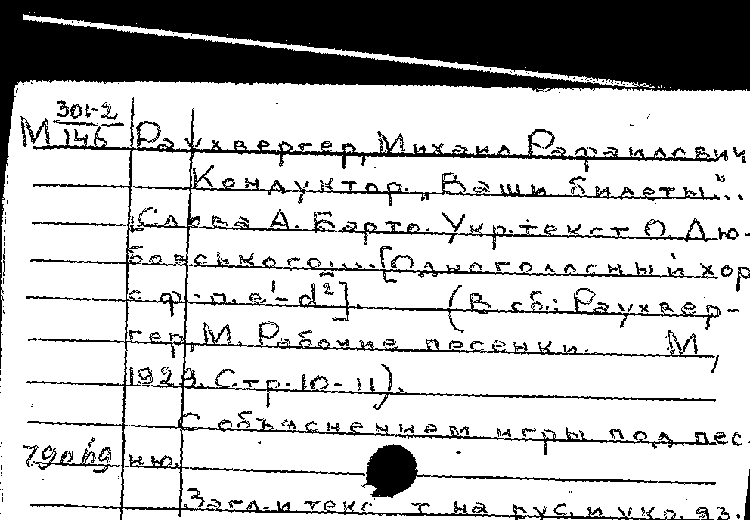 М 301-2/146 Раухвергер, Михаил Рафаилович
Кондуктор. „Ваши билеты"...
Слова А. Барто. Укр. текст О. Дю-
бовського... [Одноголосный хор
с ф.-п. e¹-d²]. (В сб.: Раухвер-
гер, М. Рабочие песенки. М,
1929. Стр. 10-11).
С объяснением игры под пес-
ню.
Загл. и текст на рус. и укр. яз.